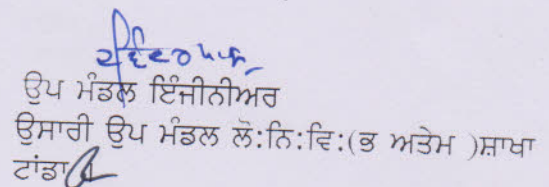 ਉਪ ਮੰਡਲ ਇੰਜੀਨੀਅਰ
ਉਸਾਰੀ ਉਪ ਮੰਡਲ ਲੋ:ਨਿ:ਵਿ:(ਭ ਅਤੇਮ )ਸ਼ਾਖਾ
ਟਾਂਡਾ